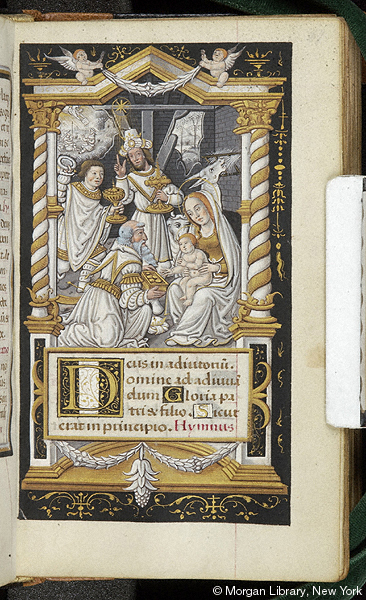 Deus in adiutoriu.
Domine ad adiuuā
dum Gloria pa
tri & filio. Sicut
erat in principio. Hymnus
© Morgan Library, New York